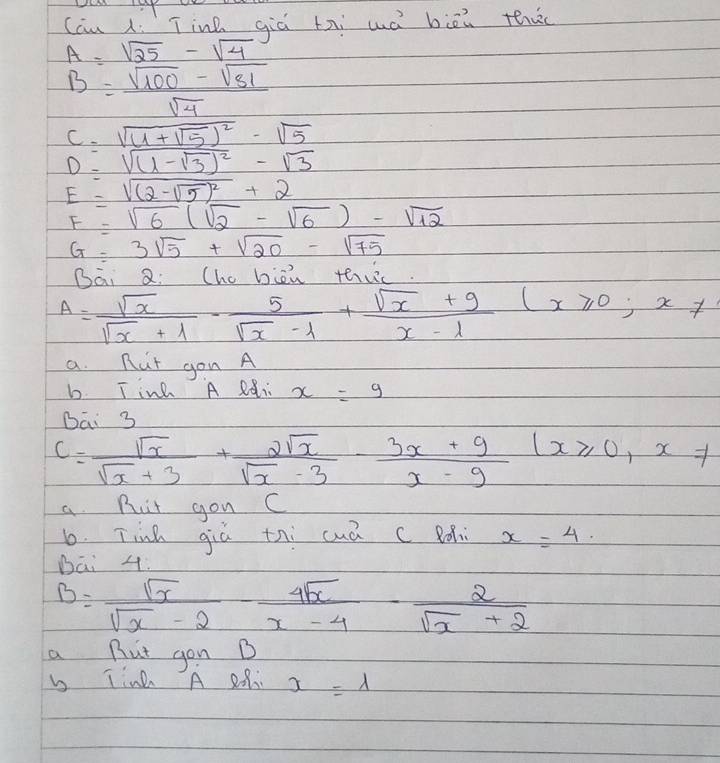 Câu 1: Tính giá trị của biểu thức
A = √25 - √4
B = (√100 - √81) / √4
C = √((1 + √5)²) - √5
D = √((1 - √3)²) - √3
E = √((2 - √5)²) + 2
F = √6 (√2 - √6) - √12
G = 3√5 + √20 - √75
Bài 2: Cho biểu thức.
A = √x / (√x + 1) - 5 / (√x - 1) + (√x + 9) / (x - 1) (x ≥ 0; x ≠
a. Rút gọn A
b. Tính A khi x = 9
Bài 3
C = √x / (√x + 3) + 2√x / (√x - 3) - (3x + 9) / (x - 9) (x ≥ 0, x ≠
a. Rút gọn C
b. Tính giá trị của C khi x = 4.
Bài 4:
B = √x / (√x - 2) - 4√x / (x - 4) - 2 / (√x + 2)
a Rút gọn B
b Tính A khi x = 1